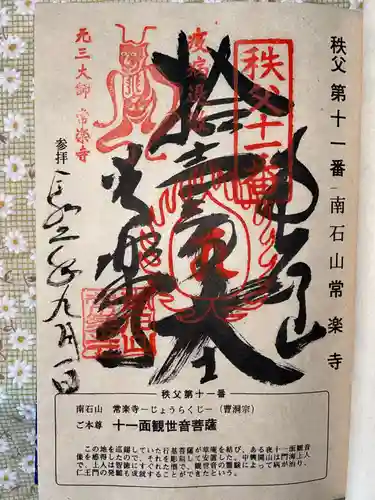 秩父 第十一番 南石山 常楽寺
秩父十一番
疫病退散
元三大師 常楽寺
参拝
九月一日
秩父第十一番
南石山 常楽寺－じょうらくじ－（曹洞宗）
ご本尊 十一面観世音菩薩
この地を巡錫していた行基菩薩が草庵を結び、ある夜十一面観音
像を感得したので、それを彫刻して安置した。中興開山は門海上人
で、上人は智徳にすぐれた僧で、観世音の霊験によって病が治り、
仁王門の発願も成就することができたという。